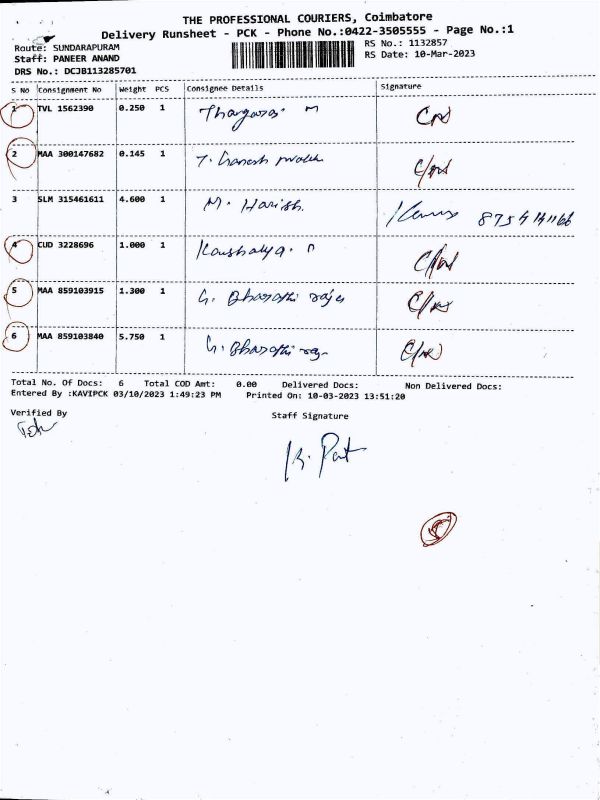 THE PROFESSIONAL COURIERS, Coimbatore
Delivery Runsheet - PCK - Phone No.:0422-3505555 - Page No.:1
Route: SUNDARAPURAM RS No.: 1132857
Staff: PANEER ANAND RS Date: 10-Mar-2023
DRS No.: DCJB113285701
S No Consignment No Weight PCS Consignee Details Signature
1 TVL 1562390 0.250 1
2 MAA 300147682 0.145 1
3 SLM 315461611 4.600 1 M. Harish.
4 CUD 3228696 1.000 1 Kaushalya.
5 MAA 859103915 1.300 1 G. Bharathi
6 MAA 859103840 5.750 1 G. Bharathi
Total No. Of Docs: 6 Total COD Amt: 0.00 Delivered Docs: Non Delivered Docs:
Entered By :KAVIPCK 03/10/2023 1:49:23 PM Printed On: 10-03-2023 13:51:20
Verified By
Staff Signature